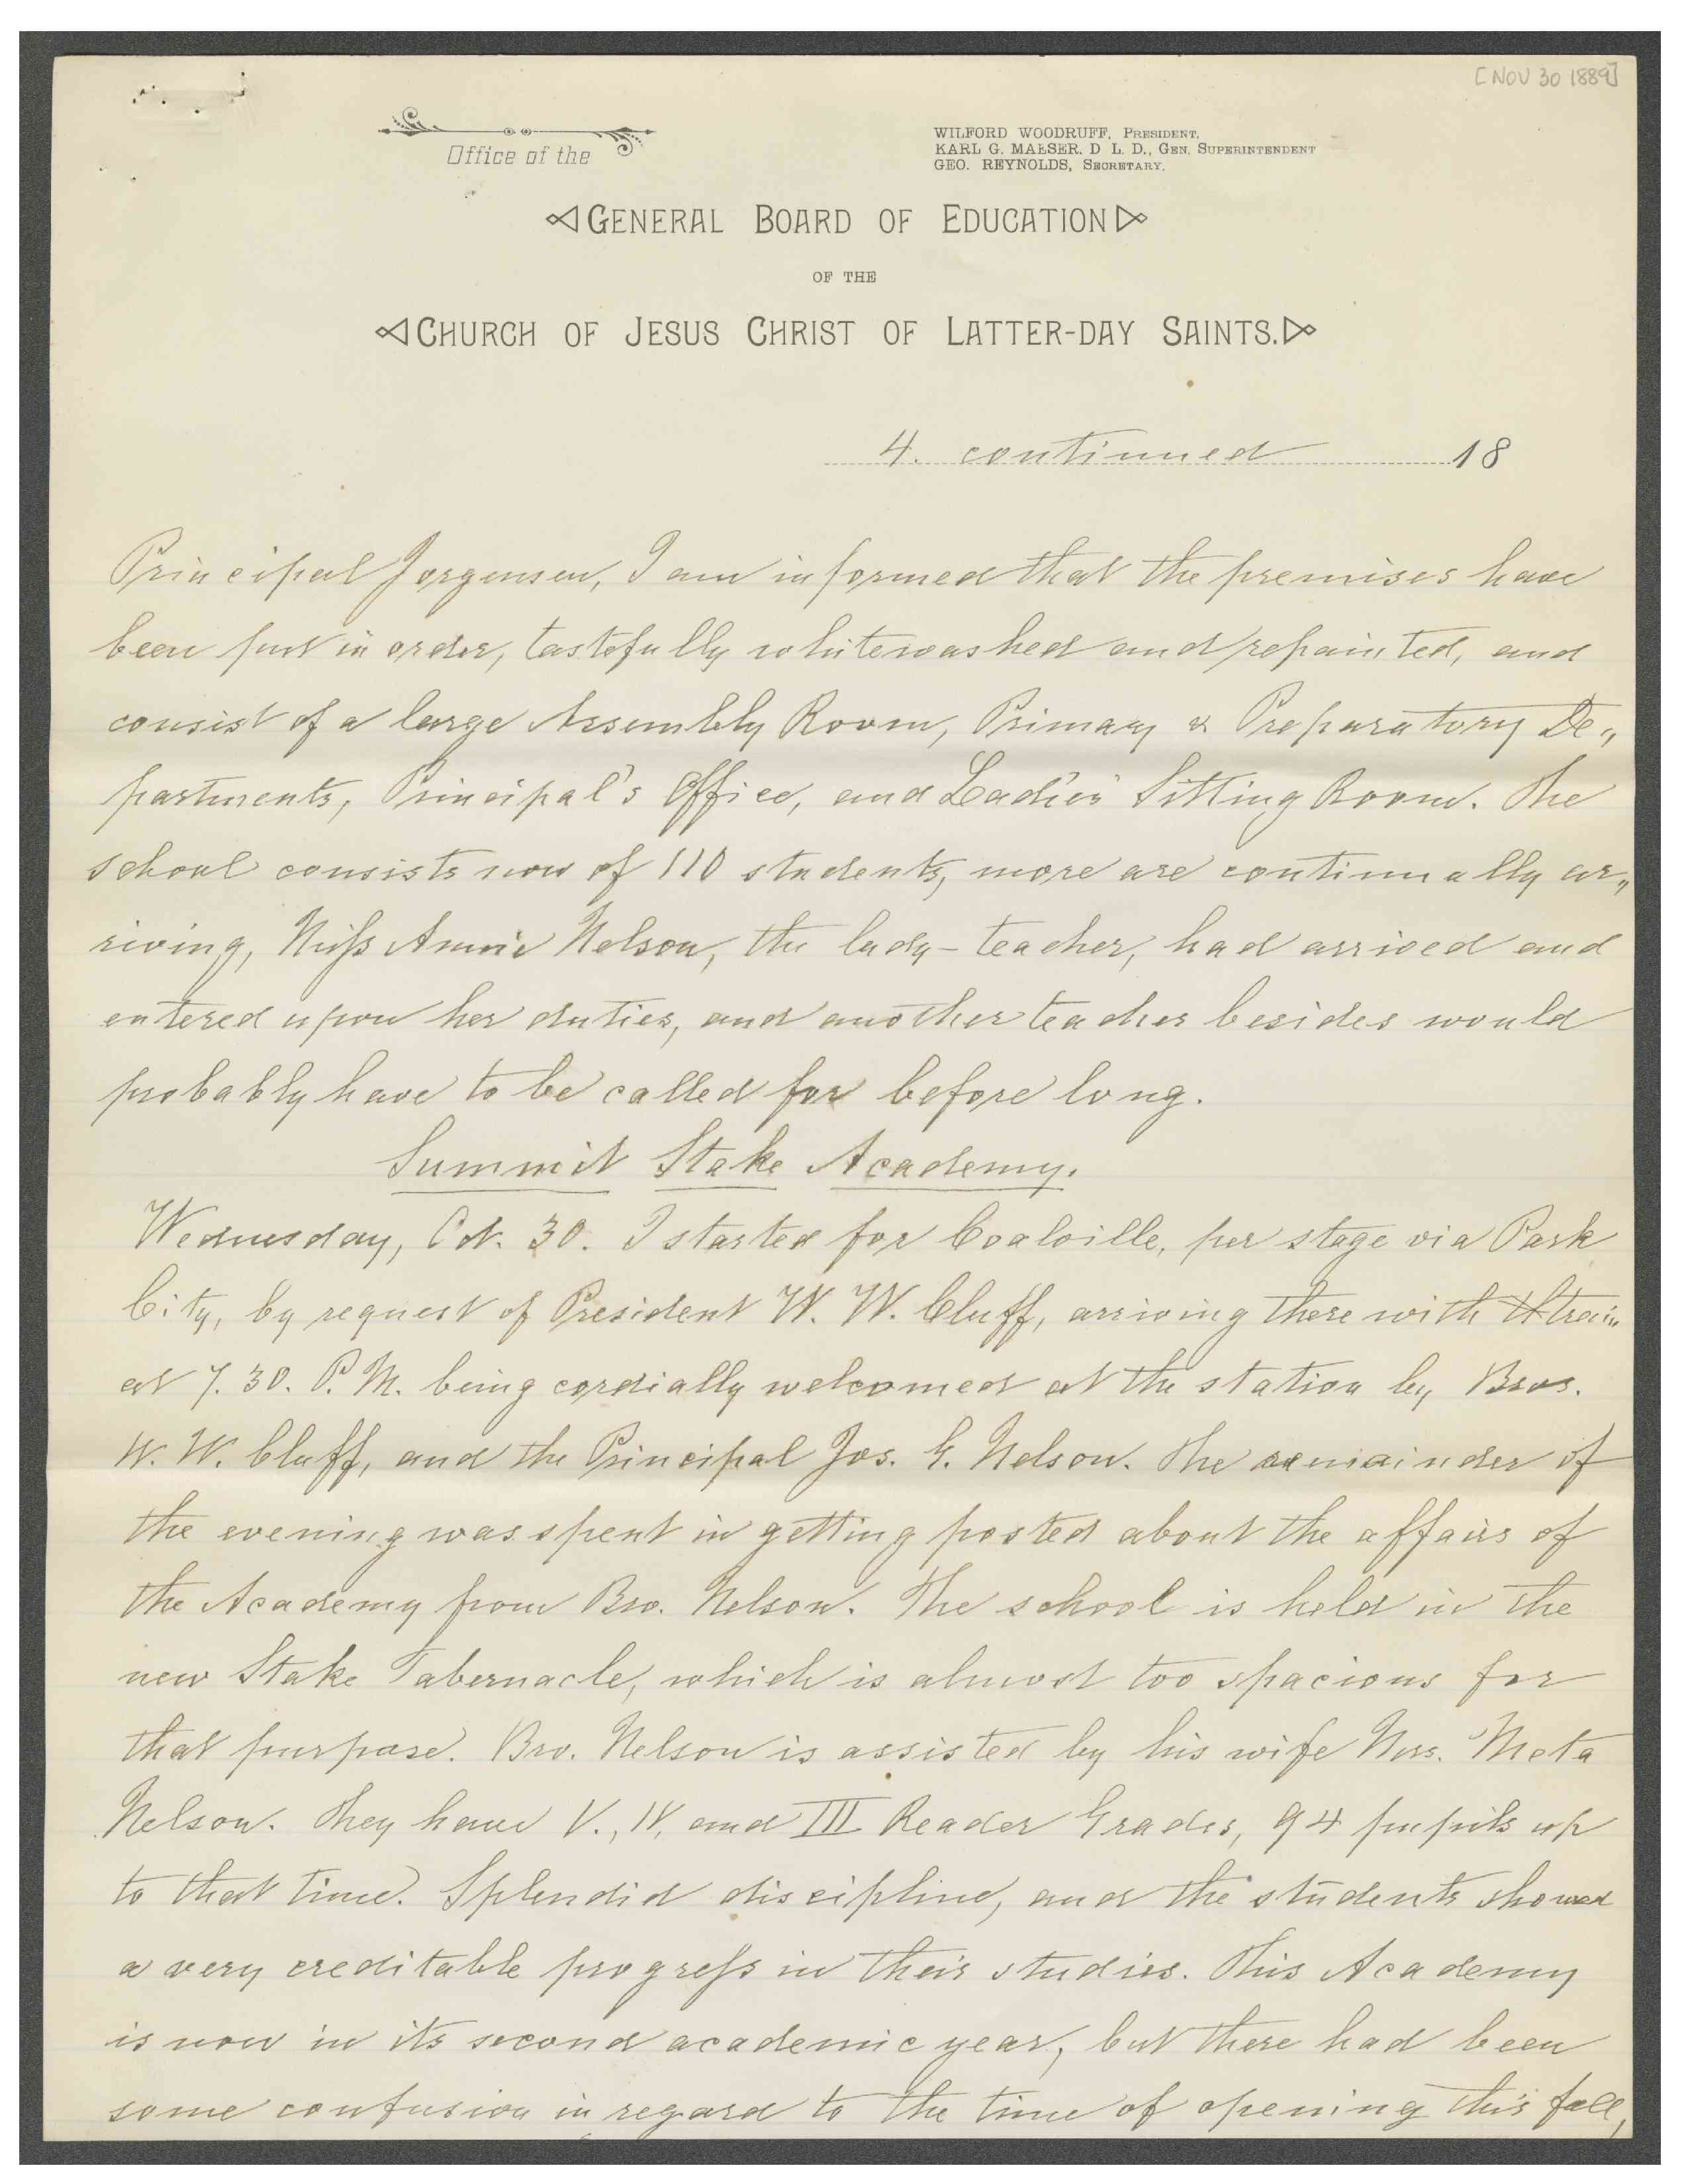 [NOV 30 1889]
Office of the
WILFORD WOODRUFF, PRESIDENT,
KARL G. MAESER, D. L. D., GEN. SUPERINTENDENT
GEO. REYNOLDS, SECRETARY.
GENERAL BOARD OF EDUCATION
OF THE
CHURCH OF JESUS CHRIST OF LATTER-DAY SAINTS.
4. continued 18
Principal Jorgensen, I am informed that the premises have
been put in order, tastefully whitewashed and repainted, and
consist of a large Assembly Room, Primary & Preparatory De„
partments, Principal's Office, and Ladies' Sitting Room. The
school consists now of 110 students, more are continually ar„
riving, Miss Annie Nelson, the lady-teacher, had arrived and
entered upon her duties, and another teacher besides would
probably have to be called for before long.
Summit Stake Academy.
Wednesday, Oct. 30. I started for Coalville, per stage via Park
City, by request of President W. W. Cluff, arriving there with train
at 7.30. P. M. being cordially welcomed at the station by Bros.
W. W. Cluff, and the Principal Jos. G. Nelson. The remainder of
the evening was spent in getting posted about the affairs of
the Academy from Bro. Nelson. The school is held in the
new Stake Tabernacle, which is almost too spacious for
that purpose. Bro. Nelson is assisted by his wife Mrs. Meta
Nelson. They have V., IV, and III Reader Grades, 94 pupils up
to that time. Splendid discipline, and the students showed
a very creditable progress in their studies. This Academy
is now in its second academic year, but there had been
some confusion in regard to the time of opening this fall,